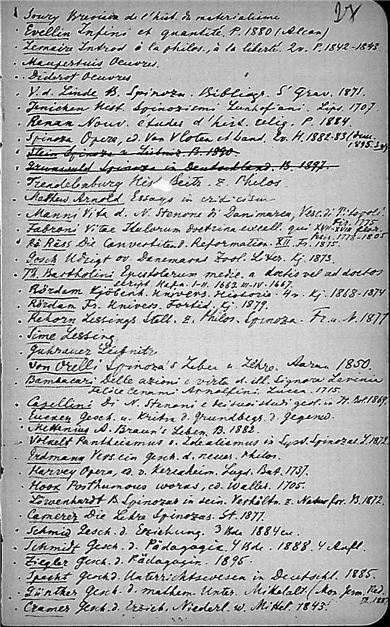 Soury Breviaire de l'hist. du materialisme
Evellin Infini et quantité. P. 1880 (Alcan)
Lemaire Introd à la philos. à la liberté. 2v. P. 1842-1843
Maupertuis Oeuvres.
Diderot Oeuvres
V. d. Linde B. Spinoza. Bibliogr. S' Grav. 1871.
Jenichen Hist. Spinozismi Leenhofiani. Lips. 1707
Renan Nouv. études d'hist. relig. P. 1884.
Spinoza Opera, ed. Van Vloten & Land. Ev. H. 1882-83
Stein Spinoza u. Leibniz B. 1890.
Grunwald Spinoza in Deutschland. B. 1897.
Trendelenburg Hist. Beitr. z. Philos.
Mathew Arnold Essays in criticism
Manni Vita d. N. Stenone di Danimarca, Vesc. di Titopoli Fir. 1775
Fabroni Vitae Italorum doctrina excell. qui XVII. XVIII. flor. 1778-1805
Rö Die Convertiten d. Reformation. XII. Fr. 1875.
Gosch Udsigt ov. Danemarks Zool. Liter. Kj. 1873.
Th. Bartholini Epistolarum medic. a doctis vel ad doctos
script Hafn. I-II. 1663. III-IV. 1667.
Rördam Kjöbenh. Univers. Historie. 4v. Kj. 1868-1874
Rördam Fr. Univers. Fortid. Kj. 1879.
Rehorn Lessings Stell. z. Philos. Spinoza. Fr. a. M. 1877
Sime Lessing
Guhrauer Leibnitz
Von Orelli Spinoza's Leben u. Lehre. Aarau 1850.
Bambacari Delle azioni e virtù d. ill. Signora Lavinia
Felice Cenami Arnolfini. Lucca 1715.
Capellini Di N. Stenone e dei suoi studi geol. in It. Bol. 1869.
Eucken Gesch. u. Kritik d. Grundbegr. d. Gegenw.
A. Braun's Leben B. 1882.
Volkelt Pantheismus u. Idealismus in Syst. Spinozas. L. 1872
Erdmann Vers. ein Gesch. d. neuer. Philos.
Harvey Opera, ed. v. Kerzeheim. Lugd. Bat. 1737.
Hook Posthumous works, ed. Waller. 1705.
Löwenhardt B. Spinozas in sein. Verhältn. z. Naturfor. B. 1872.
Camerer Die Lehre Spinozas. St. 1877.
Schmid Gesch. d. Erziehung. 3 Bde 1884 eu.
Schmidt Gesch. d. Pädagogik. 4 Bde. 1888. 4 Aufl.
Ziegler Gesch. d. Pädagogik. 1895
Specht Gesch. d. Unterrichtswesen in Deutschl. 1885.
Günther Gesch. d. mathem. Unter. Mittelalt. (Mon. Germ. Paed. III. 1887
Cramer Gesch. d. Erzieh. Niederl. w. Mittel. 1843.